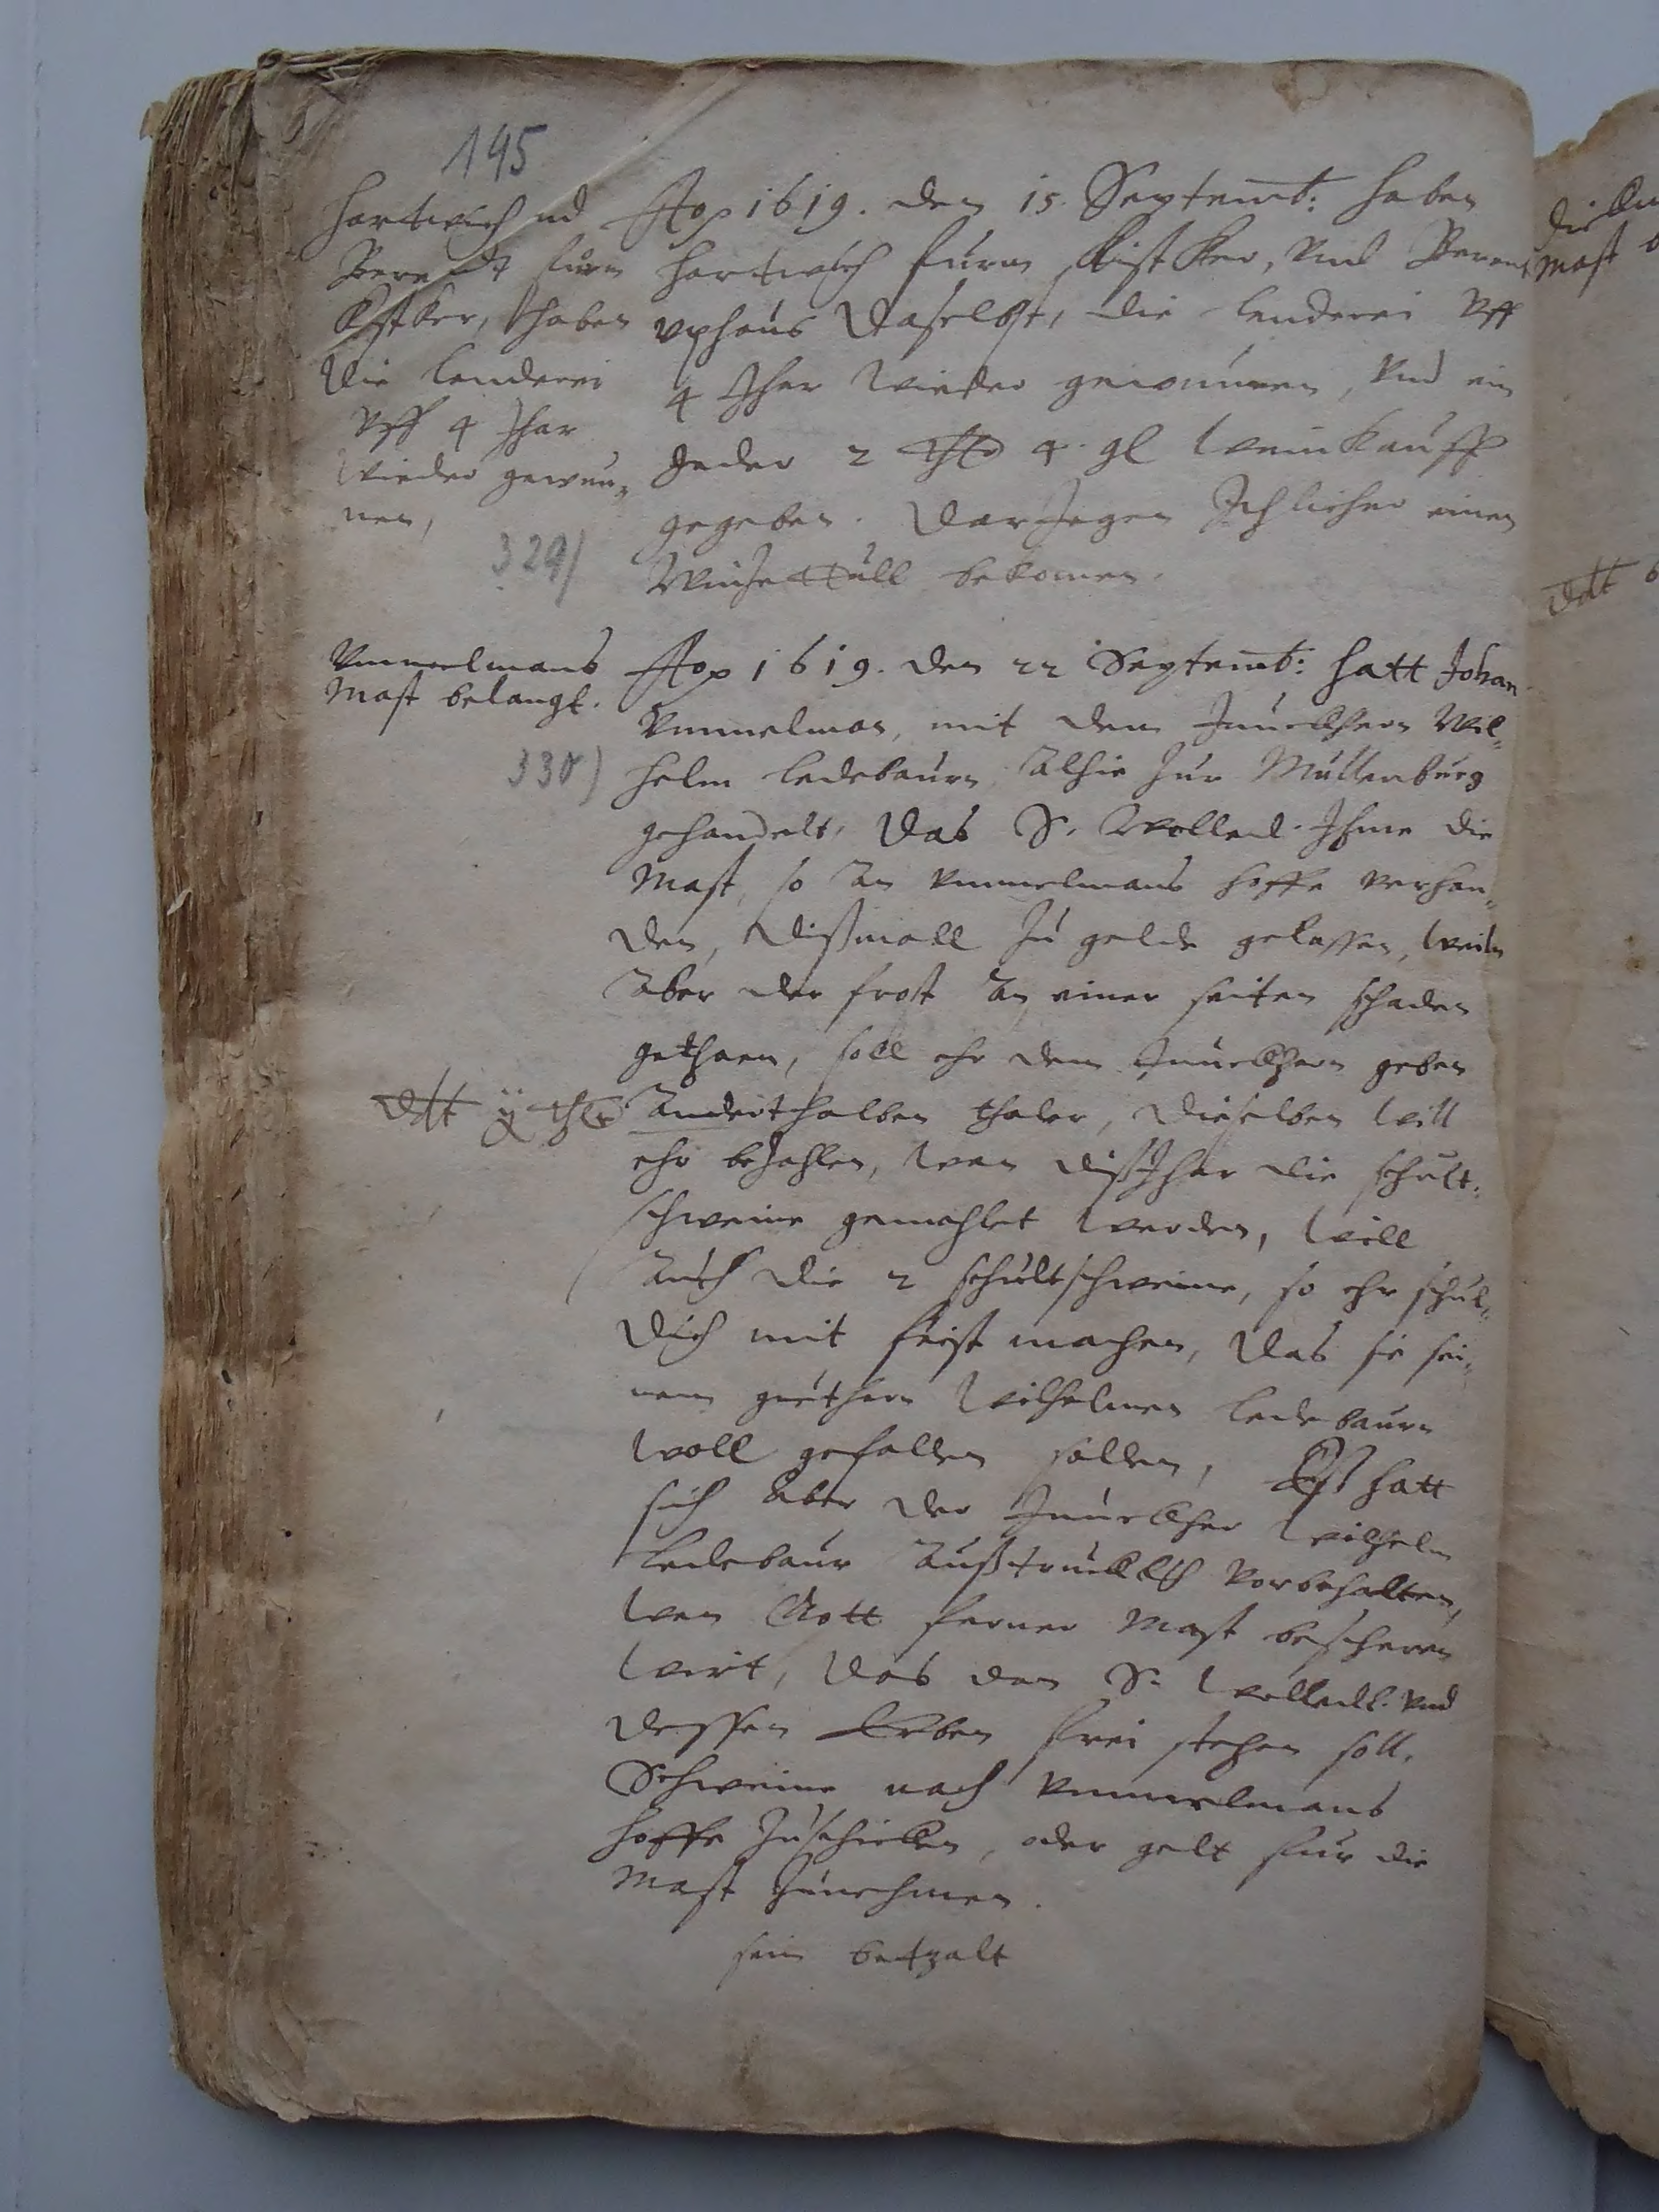 195
Hartwich und
Berendt furm
Kistker, haben
die lenderei
Uff 4 Jhar
wieder gewun„
nen,
329)
Ao 1619. den 15. Septemb: haben
Hartwich furm Kistker, und Berent
uphaus daselbst, die lenderei Uff
4 Jhar wieder gewunnen, und ein
Jeder 2 thlr 4. gl weinkauff
gegeben. Dar Jegen Ichlicher einen
bekomen.
Ummelmans
Mast belangt.
330)
Ao 1619. den 22 Septemb: hatt Johan
Ummelman, mit dem Junckhern Wil„
helm Ledebaurn alhie zur Mullenburg
gehandelt, das S. Wolled. Ihme die
Mast, so an Ummelmans hoffe verhan„
den, dißmall zu gelde gelassen, weiln
aber der frost an einer seiten schaden
gethaen, soll ehr dem Junckhern geben
ddt ij thlr
anderthalben thaler, dieselben will
ehr bezahlen, wan diß Jhar die schult„
schweine gemahlet werden, will
auch die 2 schultschweine, so ehr schul„
dich mit feist machen, das sie sei„
nem guthern Wilhelmen Ledebaurn
woll gefallen sollen, Eß hatt
sich aber der Junckher Wilhelm
Ledebaur außtrucklich vorbehalten,
wan Gott ferner Mast bescheren
wirt, das dan S. Wolledl. und
dessen Erben frei stehen soll,
Schweine nach Ummelmans
hoffe zuschicken, oder gelt fur die
Mast zunehmen.
sein betzalt
die
Mast
ddt